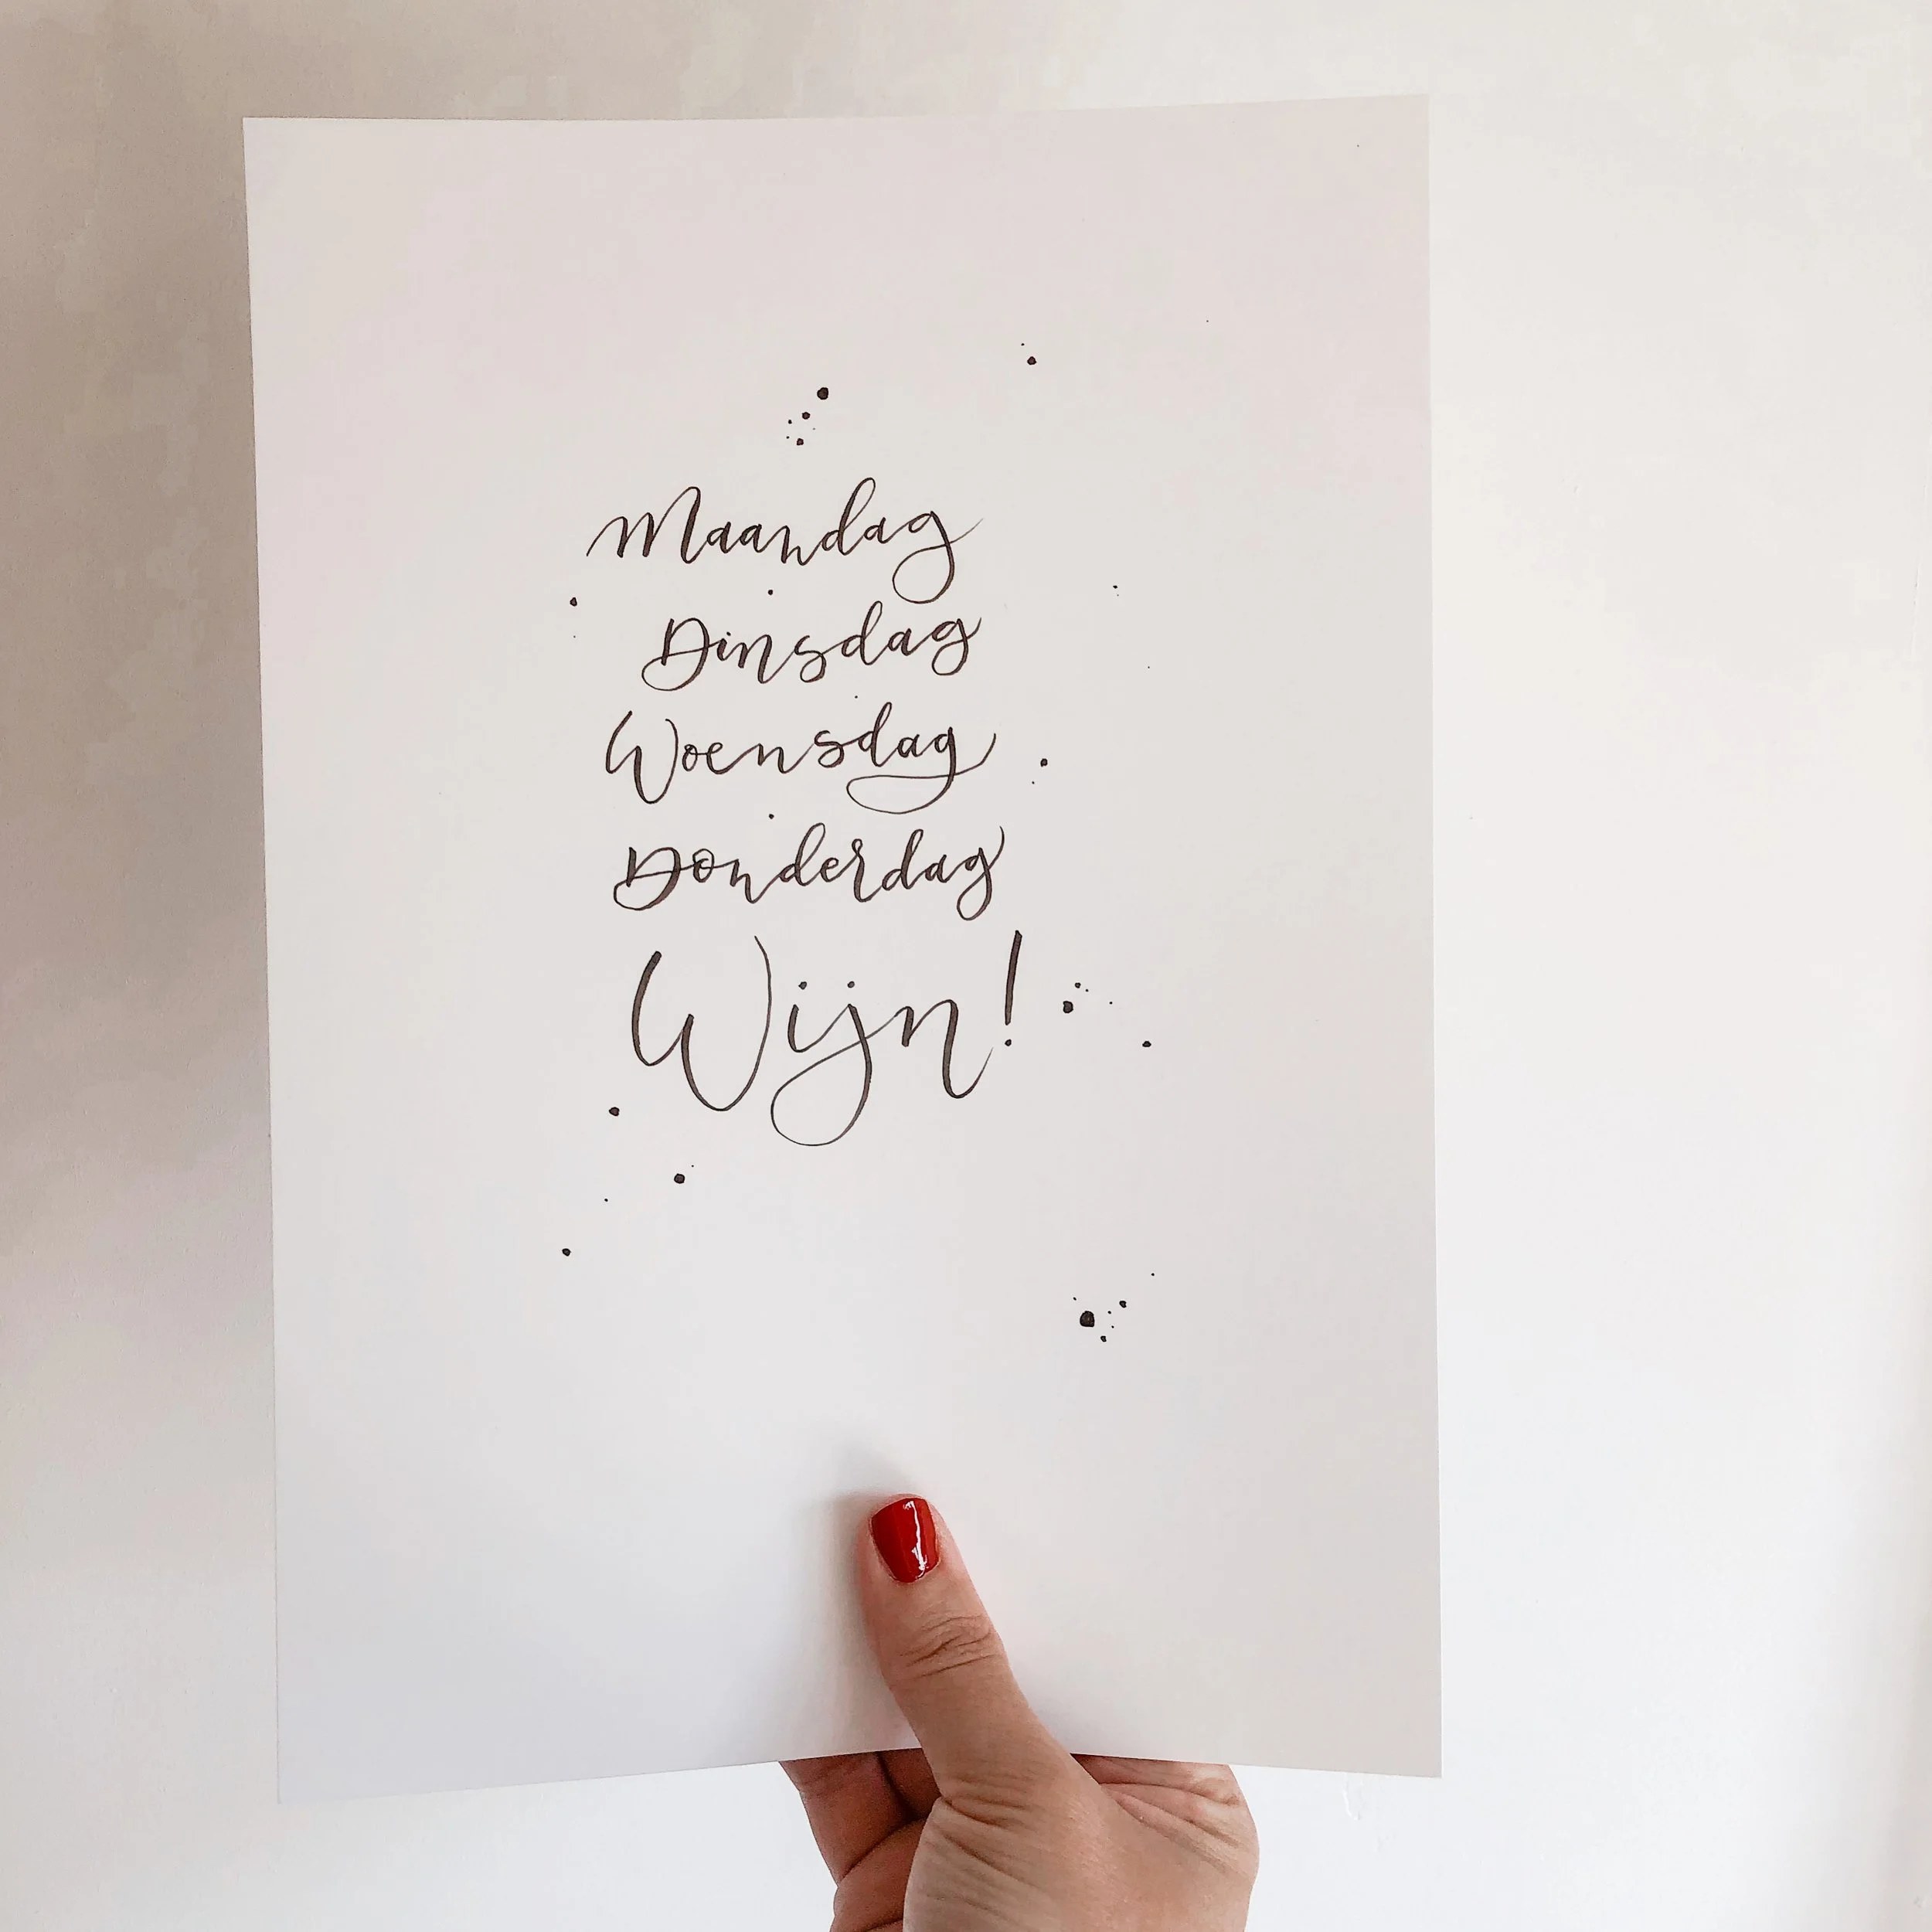 Maandag
Dinsdag
Woensdag
Donderdag
Wijn!